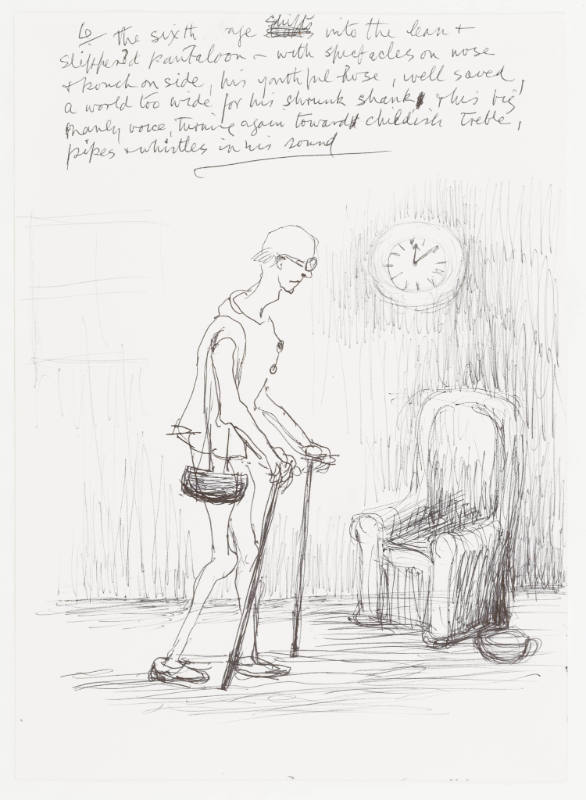 6/ the sixth age shifts into the lean +
slipper'd pantaloon – with spectacles on nose
+ pouch on side, his youthful hose, well saved,
a world too wide for his shrunk shank, + his big
manly voice, Turning again toward childish treble,
pipes + whistles in his sound